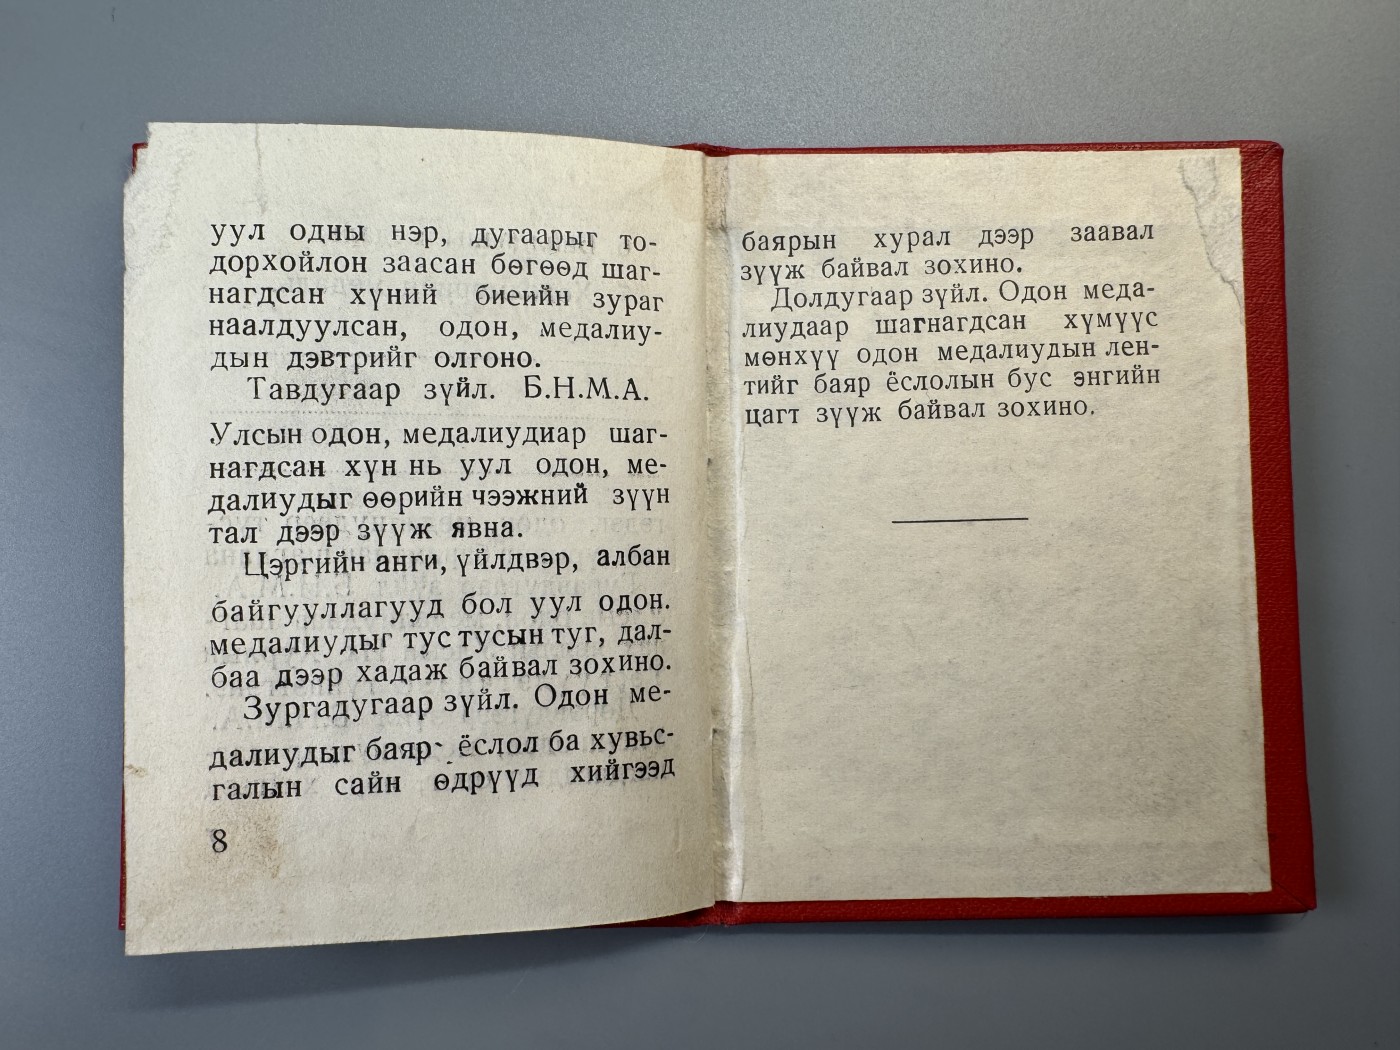 уул одны нэр, дугаарыг то-
дорхойлон заасан бөгөөд шаг-
нагдсан хүний биеийн зураг
наалдуулсан, одон, медалиу-
дын дэвтрийг олгоно.
Тавдугаар зүйл. Б.Н.М.А.
Улсын одон, медалиудиар шаг-
нагдсан хүн нь уул одон, ме-
далиудыг өөрийн чээжний зүүн
тал дээр зүүж явна.
Цэргийн анги, үйлдвэр, албан
байгууллагууд бол уул одон.
медалиудыг тус тусын туг, дал-
баа дээр хадаж байвал зохино.
Зургадугаар зүйл. Одон ме-
далиудыг баяр- ёслол ба хувьс-
галын сайн өдрүүд хийгээд
8
баярын хурал дээр заавал
зүүж байвал зохино.
Долдугаар зүйл. Одон меда-
лиудаар шагнагдсан хүмүүс
мөнхүү одон медалиудын лен-
тийг баяр ёслолын бус энгийн
цагт зүүж байвал зохино.